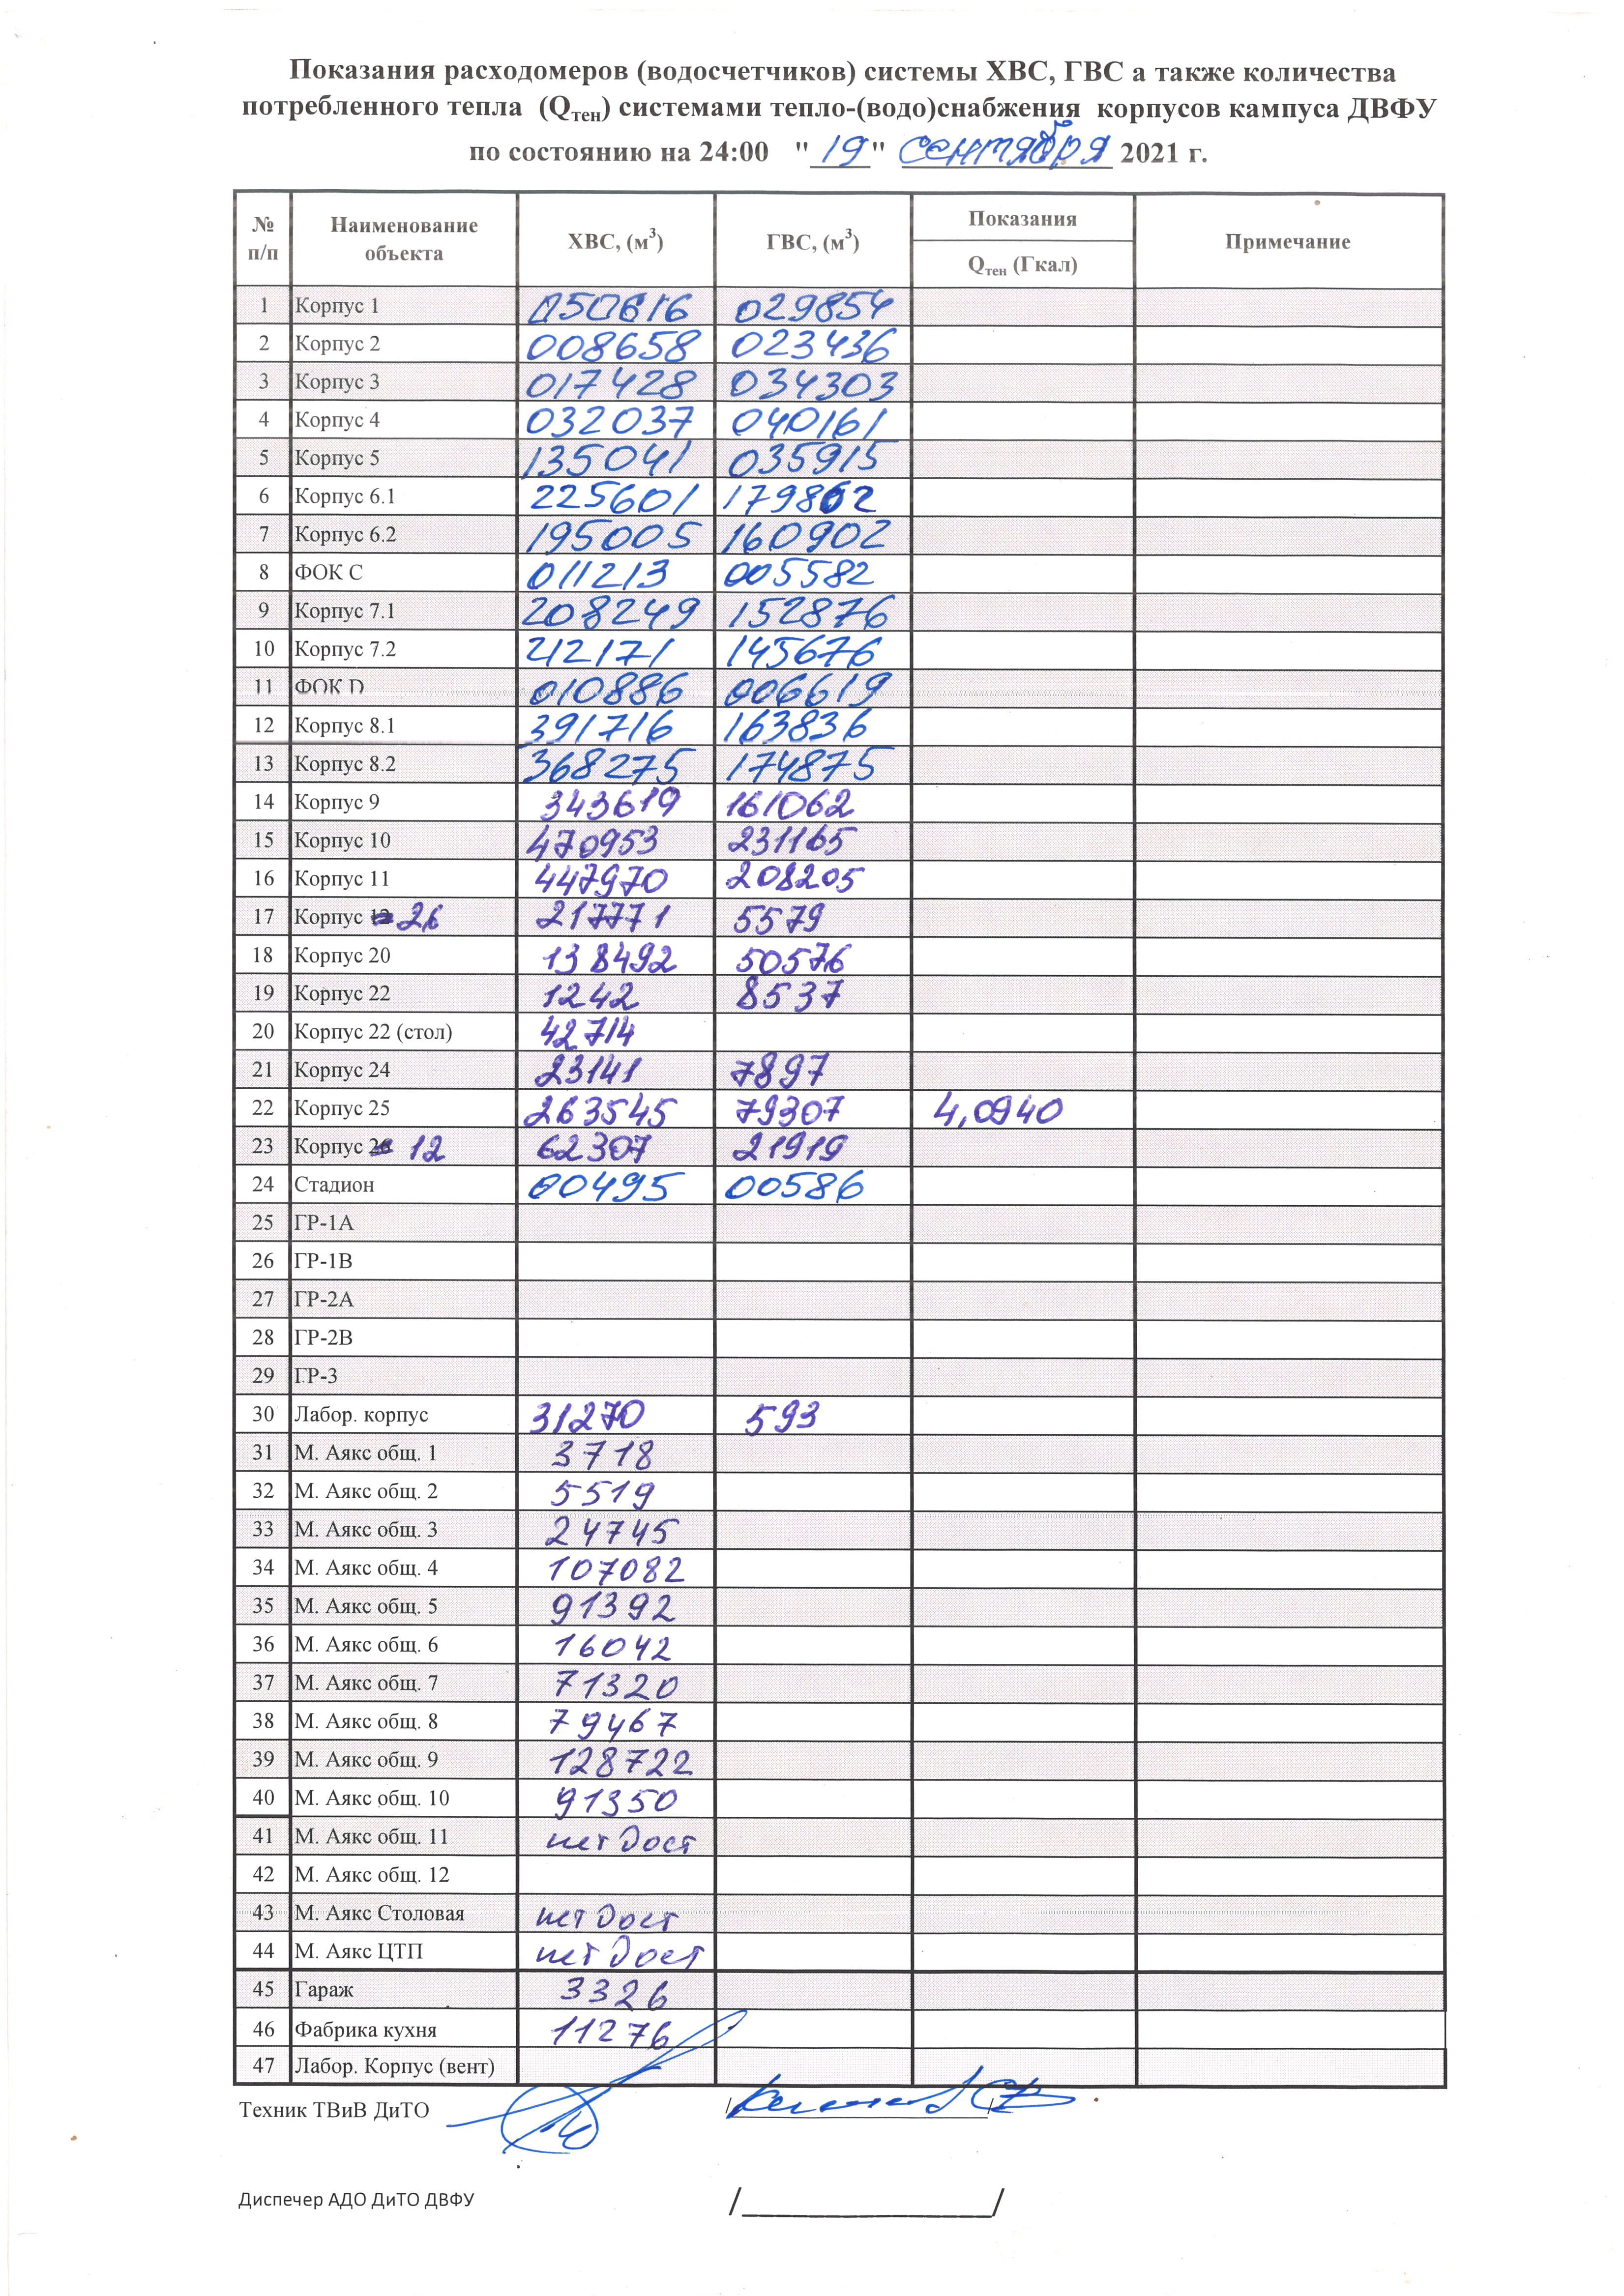 Показания расходомеров (водосчетчиков) системы ХВС, ГВС а также количества
потребленного тепла (Qтен) системами тепло-(водо)снабжения корпусов кампуса ДВФУ
по состоянию на 24:00 "19" сентября 2021 г.
№ п/п Наименование объекта ХВС, (м³) ГВС, (м³) Показания Qтен (Гкал) Примечание
1 Корпус 1 050616 029854
2 Корпус 2 008658 023436
3 Корпус 3 017428 034303
4 Корпус 4 032037 040161
5 Корпус 5 135041 035915
6 Корпус 6.1 225601 179862
7 Корпус 6.2 195005 160902
8 ФОК С 011213 005582
9 Корпус 7.1 208249 152876
10 Корпус 7.2 212171 145676
11 ФОК D 010886 006619
12 Корпус 8.1 391716 163836
13 Корпус 8.2 368275 174875
14 Корпус 9 343619 161062
15 Корпус 10 470953 231165
16 Корпус 11 447970 208205
17 Корпус 12 26 217771 5579
18 Корпус 20 138492 50576
19 Корпус 22 1242 8537
20 Корпус 22 (стол) 42714
21 Корпус 24 23141 7897
22 Корпус 25 263545 79307 4,0940
23 Корпус 26 12 62307 21919
24 Стадион 00495 00586
25 ГР-1А
26 ГР-1В
27 ГР-2А
28 ГР-2В
29 ГР-3
30 Лабор. корпус 31270 593
31 М. Аякс общ. 1 3718
32 М. Аякс общ. 2 5519
33 М. Аякс общ. 3 24745
34 М. Аякс общ. 4 107082
35 М. Аякс общ. 5 91392
36 М. Аякс общ. 6 16042
37 М. Аякс общ. 7 71320
38 М. Аякс общ. 8 79467
39 М. Аякс общ. 9 128722
40 М. Аякс общ. 10 91350
41 М. Аякс общ. 11 нет дост
42 М. Аякс общ. 12
43 М. Аякс Столовая нет дост
44 М. Аякс ЦТП нет дост
45 Гараж 3326
46 Фабрика кухня 11276
47 Лабор. Корпус (вент)
Техник ТВиВ ДиТО / /
Диспечер АДО ДиТО ДВФУ / /